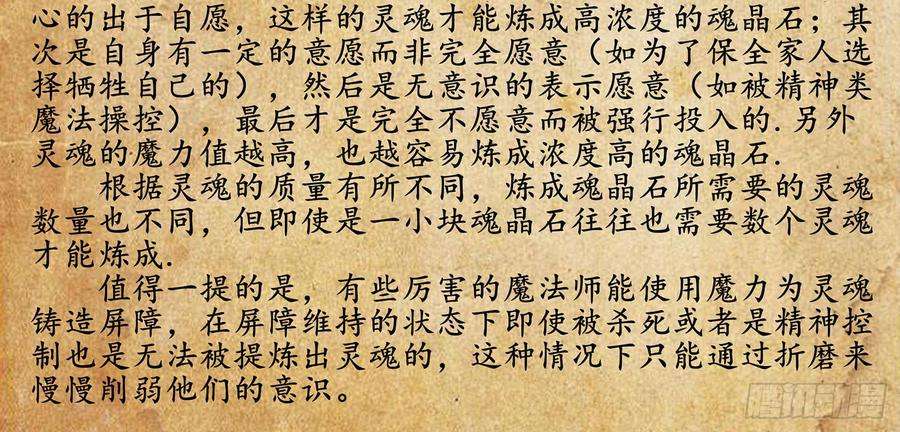 心的出于自愿，这样的灵魂才能炼成高浓度的魂晶石；其
次是自身有一定的意愿而非完全愿意（如为了保全家人选
择牺牲自己的），然后是无意识的表示愿意（如被精神类
魔法操控），最后才是完全不愿意而被强行投入的.另外
灵魂的魔力值越高，也越容易炼成浓度高的魂晶石.
根据灵魂的质量有所不同，炼成魂晶石所需要的灵魂
数量也不同，但即使是一小块魂晶石往往也需要数个灵魂
才能炼成.
值得一提的是，有些厉害的魔法师能使用魔力为灵魂
铸造屏障，在屏障维持的状态下即使被杀死或者是精神控
制也是无法被提炼出灵魂的，这种情况下只能通过折磨来
慢慢削弱他们的意识。
腾讯动漫